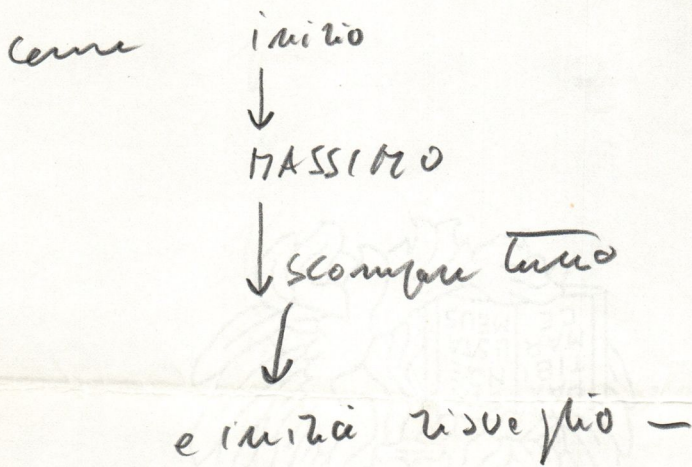 come inizio
MASSIMO
scompare tutto
e inizia risveglio —